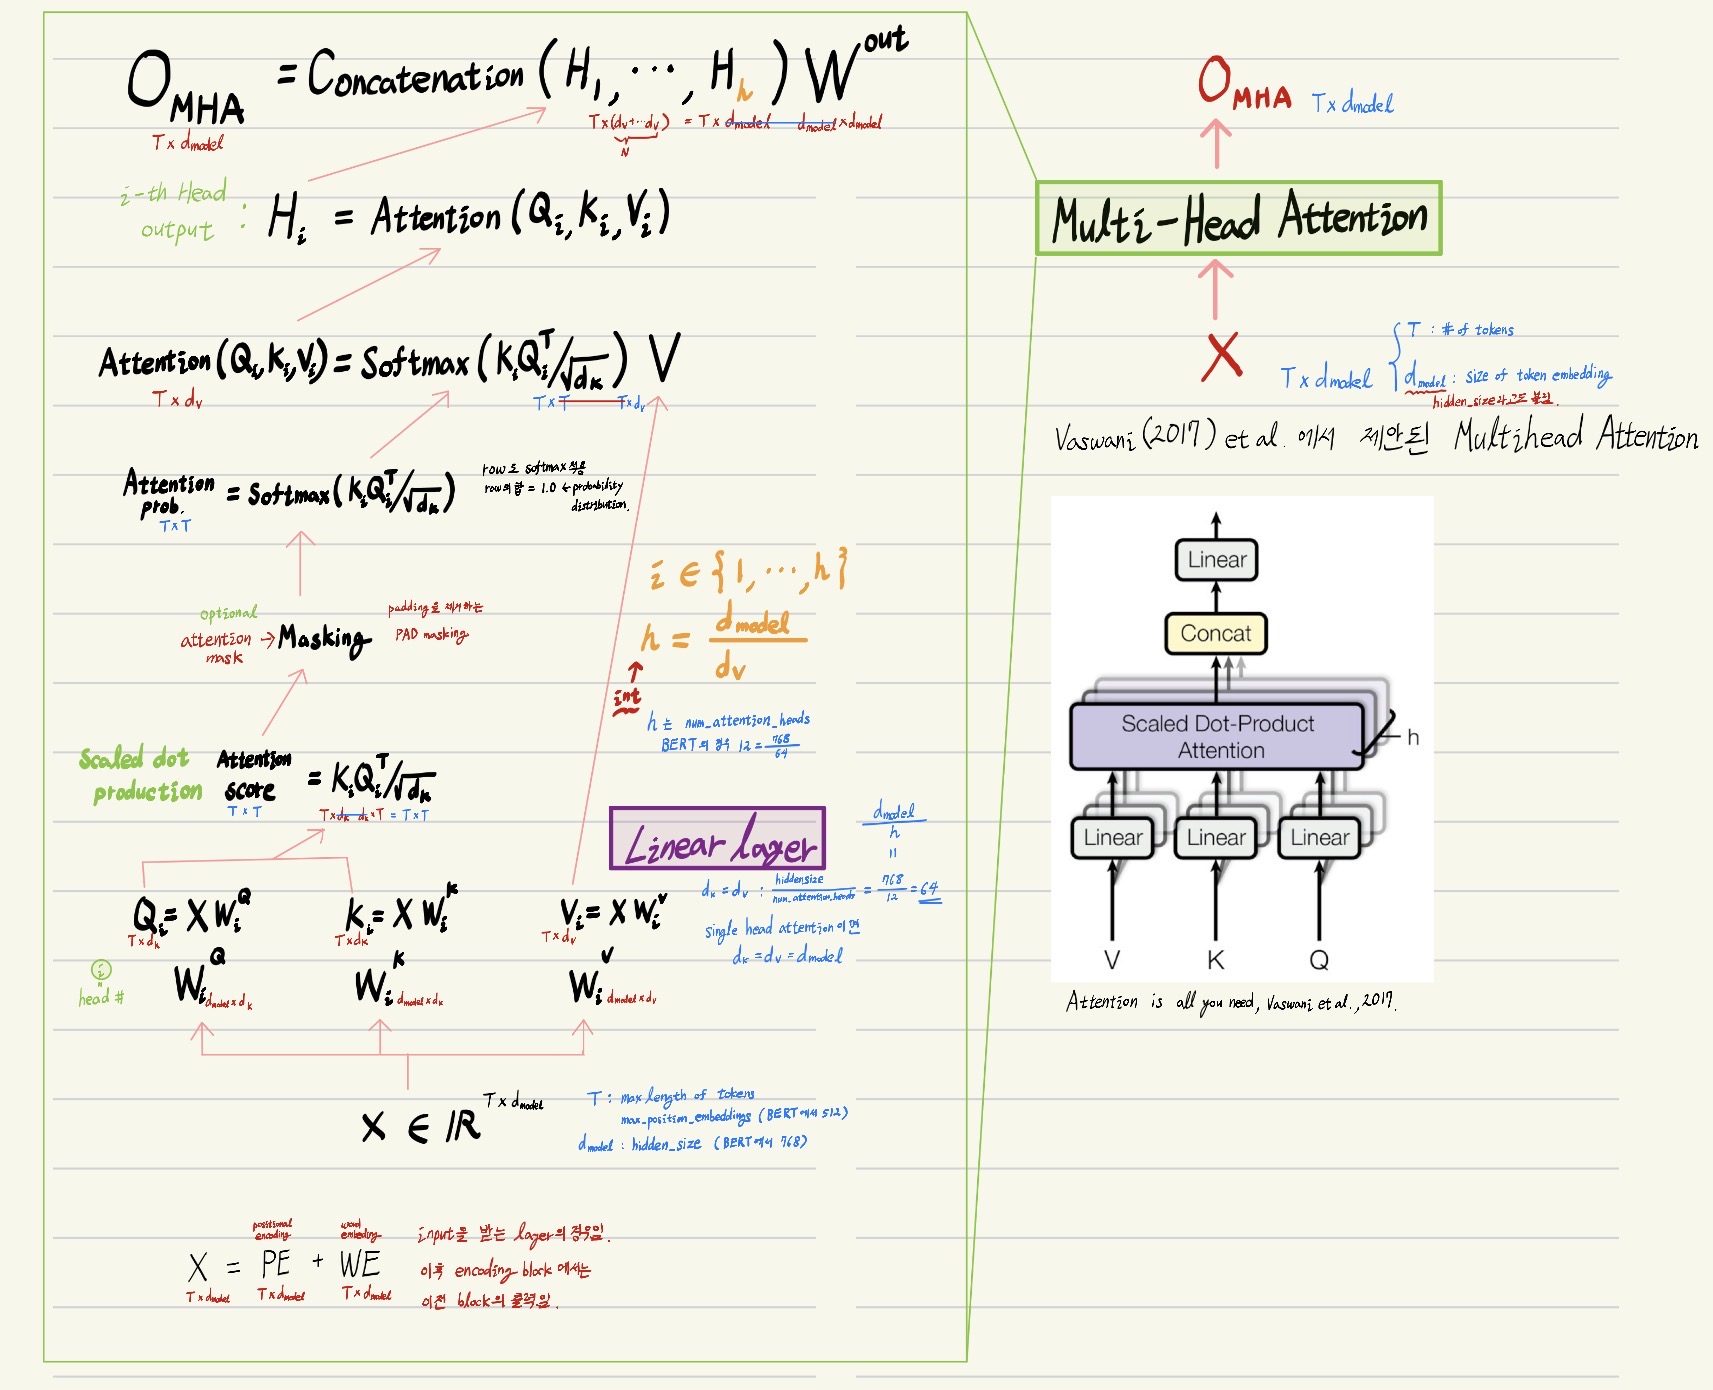 O_MHA = Concatenation(H_1, ⋯, H_h) W^out
T×d_model
T×(d_v+⋯d_v) = T×d_model d_model×d_model
N
i-th Head output : H_i = Attention(Q_i, K_i, V_i)
Attention(Q_i, K_i, V_i) = Softmax(K_iQ_i^T/√d_k) V
T×d_v
T×T T×d_v
Attention prob. = Softmax(K_iQ_i^T/√d_k)
T×T
row로 softmax 적용
row의 합 = 1.0 ← probability
distribution.
optional
attention mask → Masking
padding을 제거하는
PAD masking
i ∈ {1, ⋯, h}
h = d_model / d_v
↑
int
h는 num_attention_heads
BERT의 경우 12 = 768/64
Scaled dot production
Attention score = K_iQ_i^T/√d_k
T×T
T×d_k d_k×T = T×T
Linear layer
d_model / h
=
d_k = d_v : hiddensize / num_attention_heads = 768/12 = 64
single head attention이면
d_k = d_v = d_model
Q_i = XW_i^Q
T×d_k
K_i = XW_i^K
T×d_k
V_i = XW_i^V
T×d_v
i
=
head #
W_i^Q d_model×d_k
W_i^K d_model×d_k
W_i^V d_model×d_v
X ∈ ℝ^T×d_model
T : max length of tokens
max_position_embeddings (BERT에서 512)
d_model : hidden_size (BERT에서 768)
positional encoding
word embeding
X = PE + WE
T×d_model T×d_model T×d_model
input을 받는 layer의 경우임.
이후 encoding block에서는
이전 block의 출력임.
O_MHA T×d_model
Multi-Head Attention
X T×d_model
T : # of tokens
d_model : size of token embedding
hidden_size라고도 불림.
Vaswani(2017) et al. 에서 제안된 Multihead Attention
Linear
Concat
Scaled Dot-Product
Attention
h
Linear Linear Linear
V K Q
Attention is all you need, Vaswani et al., 2017.